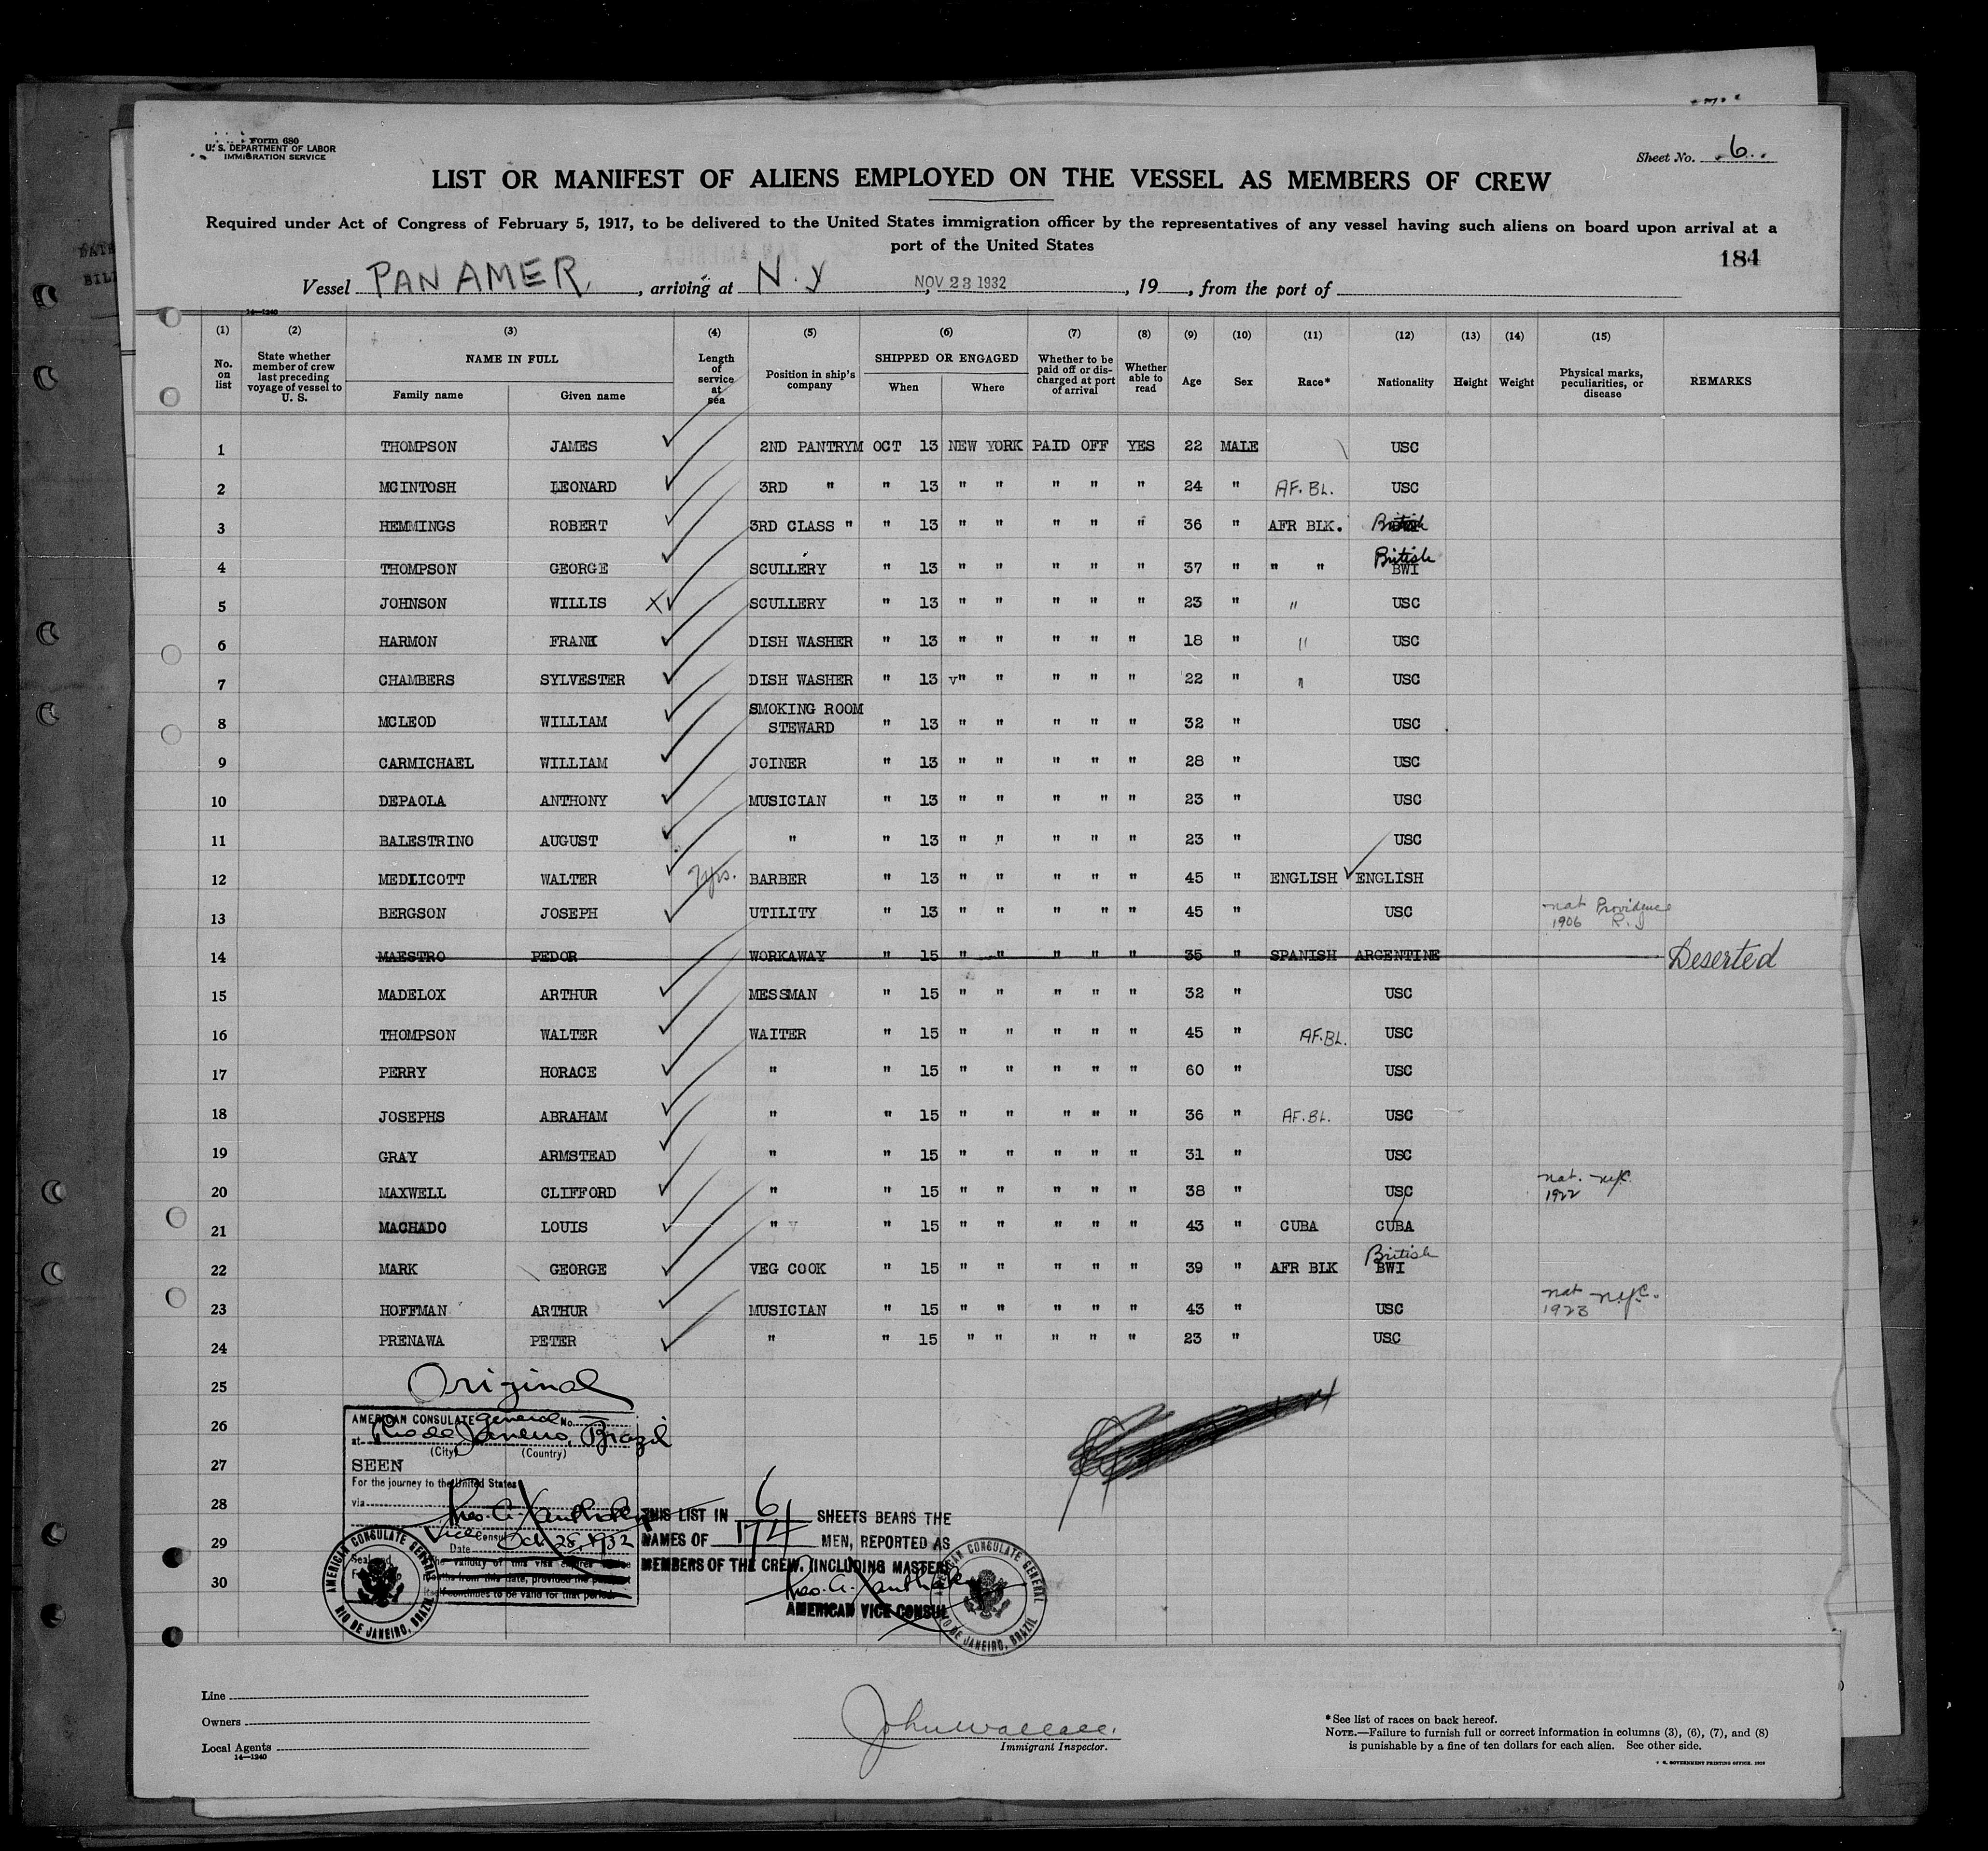 Form 680
U. S. DEPARTMENT OF LABOR
IMMIGRATION SERVICE
Sheet No. 6
LIST OR MANIFEST OF ALIENS EMPLOYED ON THE VESSEL AS MEMBERS OF CREW
Required under Act of Congress of February 5, 1917, to be delivered to the United States immigration officer by the representatives of any vessel having such aliens on board upon arrival at a
port of the United States
184
Vessel PAN AMER, arriving at N.Y, NOV 23 1932, 19__, from the port of
14—1240
(1) (2) (3) (4) (5) (6) (7) (8) (9) (10) (11) (12) (13) (14) (15)
No. on list State whether member of crew last preceding voyage of vessel to U. S. NAME IN FULL Family name Given name Length of service at sea Position in ship's company SHIPPED OR ENGAGED When Where Whether to be paid off or discharged at port of arrival Whether able to read Age Sex Race* Nationality Height Weight Physical marks, peculiarities, or disease REMARKS
1 THOMPSON JAMES 2ND PANTRYM OCT 13 NEW YORK PAID OFF YES 22 MALE USC
2 MCINTOSH LEONARD 3RD " " 13 " " " " " 24 " AF. BL. USC
3 HEMMINGS ROBERT 3RD CLASS " " 13 " " " " " 36 " AFR BLK. British
4 THOMPSON GEORGE SCULLERY " 13 " " " " " 37 " " " British BWI
5 JOHNSON WILLIS X SCULLERY " 13 " " " " " 23 " " USC
6 HARMON FRANK DISH WASHER " 13 " " " " " 18 " " USC
7 CHAMBERS SYLVESTER DISH WASHER " 13 v" " " " " 22 " " USC
8 MCLEOD WILLIAM SMOKING ROOM STEWARD " 13 " " " " " 32 " USC
9 CARMICHAEL WILLIAM JOINER " 13 " " " " " 28 " USC
10 DEPAOLA ANTHONY MUSICIAN " 13 " " " " " 23 " USC
11 BALESTRINO AUGUST " " 13 " " " " " 23 " USC
12 MEDLICOTT WALTER 7yrs. BARBER " 13 " " " " " 45 " ENGLISH ENGLISH
13 BERGSON JOSEPH UTILITY " 13 " " " " " 45 " USC nat Providence 1906 R.I
14 MAESTRO PEDOR WORKAWAY " 15 " " " " " 35 " SPANISH ARGENTINE Deserted
15 MADELOX ARTHUR MESSMAN " 15 " " " " " 32 " USC
16 THOMPSON WALTER WAITER " 15 " " " " " 45 " AF.BL. USC
17 PERRY HORACE " " 15 " " " " " 60 " USC
18 JOSEPHS ABRAHAM " " 15 " " " " " 36 " AF.BL. USC
19 GRAY ARMSTEAD " " 15 " " " " " 31 " USC
20 MAXWELL CLIFFORD " " 15 " " " " " 38 " USC nat. N.Y.C. 1922
21 MACHADO LOUIS " v " 15 " " " " " 43 " CUBA CUBA
22 MARK GEORGE VEG COOK " 15 " " " " " 39 " AFR BLK British BWI
23 HOFFMAN ARTHUR MUSICIAN " 15 " " " " " 43 " USC nat N.Y.C. 1923
24 PRENAWA PETER " " 15 " " " " " 23 " USC
25 Original
26
27
28
29
30
AMERICAN CONSULATE General No.
at Rio de Janeiro, Brazil
(City) (Country)
SEEN
For the journey to the United States
via
Vice Consul
Date Oct 28, 1932
The validity of this visa expires
months from this date, provided the passport
itself continues to be valid for that period.
AMERICAN CONSULATE GENERAL
RIO DE JANEIRO, BRAZIL
THIS LIST IN 6 SHEETS BEARS THE
NAMES OF 174 MEN, REPORTED AS
MEMBERS OF THE CREW, (INCLUDING MASTER)
AMERICAN VICE CONSUL
AMERICAN CONSULATE GENERAL
RIO DE JANEIRO, BRAZIL
Line
Owners
Local Agents
14—1240
John Wallace.
Immigrant Inspector.
*See list of races on back hereof.
NOTE.—Failure to furnish full or correct information in columns (3), (6), (7), and (8)
is punishable by a fine of ten dollars for each alien. See other side.